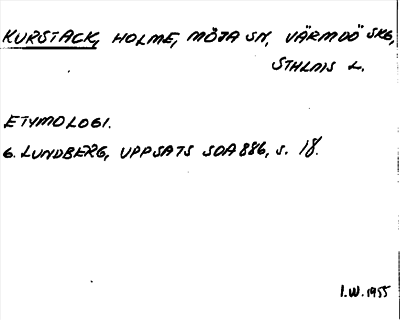 KURSTACK, HOLME, MÖJA SN, VÄRMDÖ SKG,
STHLMS L.
ETYMOLOGI.
G. LUNDBERG, UPPSATS SOA 886, S. 18.
I.W. 1955